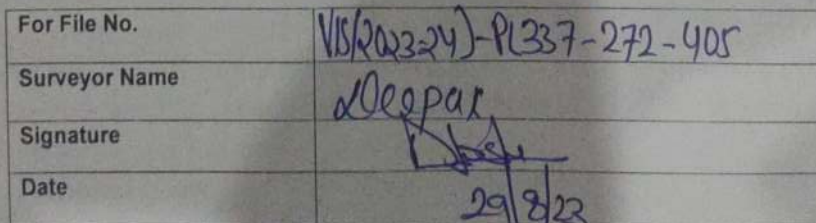 For File No. VIS(2023-24)-PL337-272-405
Surveyor Name Deepak
Signature
Date 29/8/23